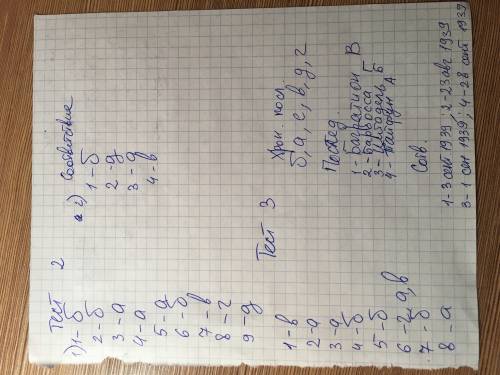 Тест 2
1) 1-б
2-б
3-а
4-а
5-а
6-б
7-в
8-г
9-д
2) Соответствие
1-б
2-д
3-д
4-в
Тест 3
1-в
2-а
3-а
4-б
5-б
6-г, а, в
7-б
8-а
Хрон. посл.
б, а, е, в, д, г
Послед.
1-Багратион В
2-Барбосса Г
3-Цитадель Б
4-Тайфун А
Соотв.
1-3 сент 1939; 2-23 авг 1939
3-1 сен 1939; 4-28 сент 1939